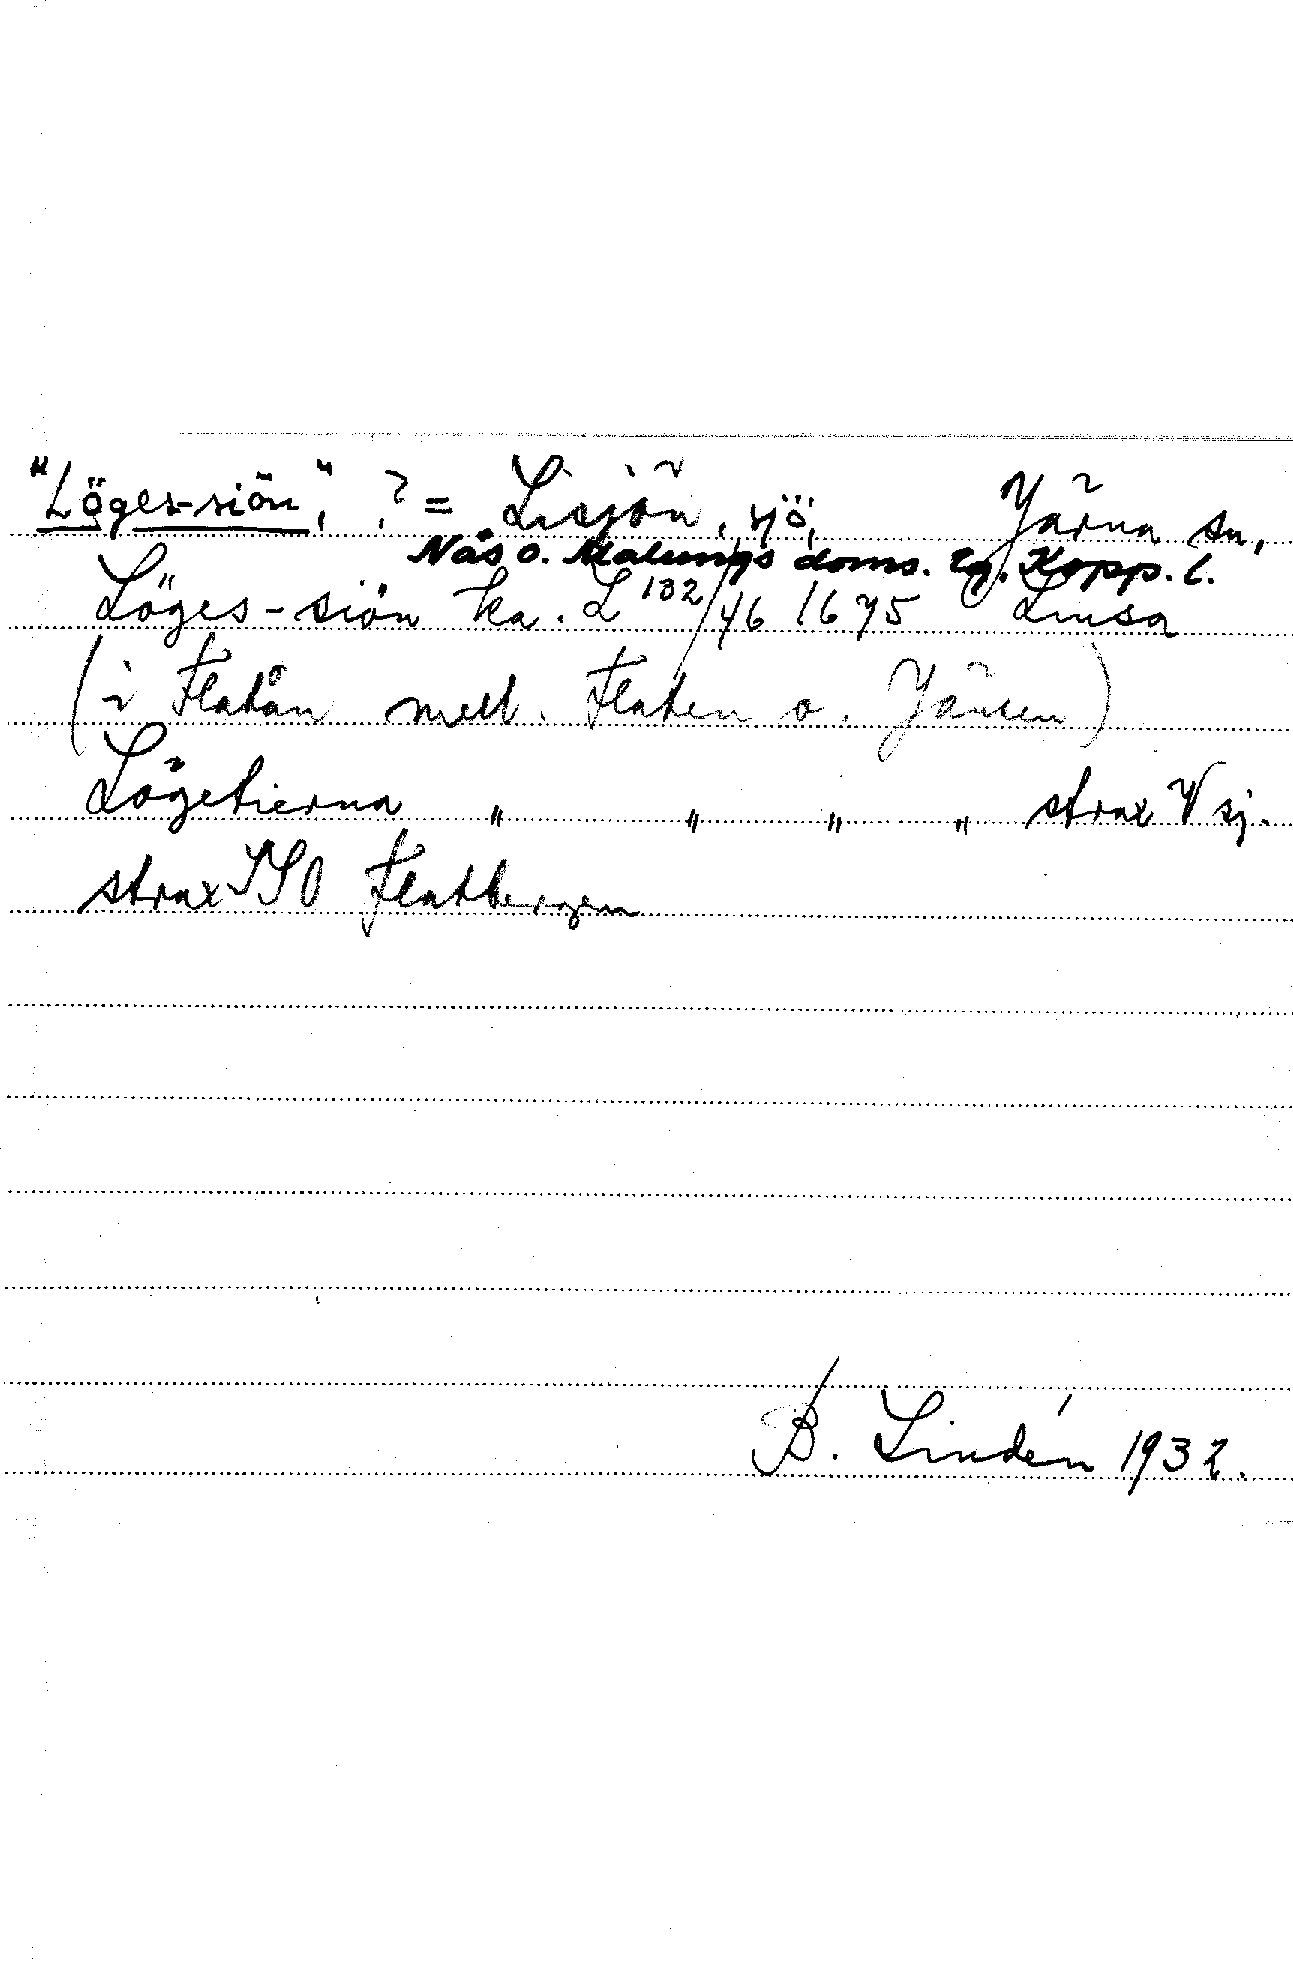 "Löges-siön", ? = Lisjön, sjö, Järna sn,
Nås o. Malungs doms. tg. Kopp. l.
Löges-siön ka. L 132/46 1675 Limsa
(i Flatån mell. Flaten o. Järnen)
Lögetierna " " " " strax V sj.
strax SSO Flatbergen
B. Lindén 1932.